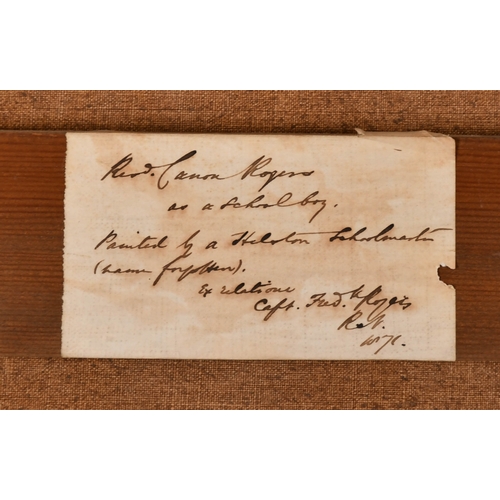 Revd. Canon Rogers
as a school boy.
Painted by a Helston Schoolmaster
(name forgotten).
Ex relatione
Capt. Fredk. Rogers
R.N.